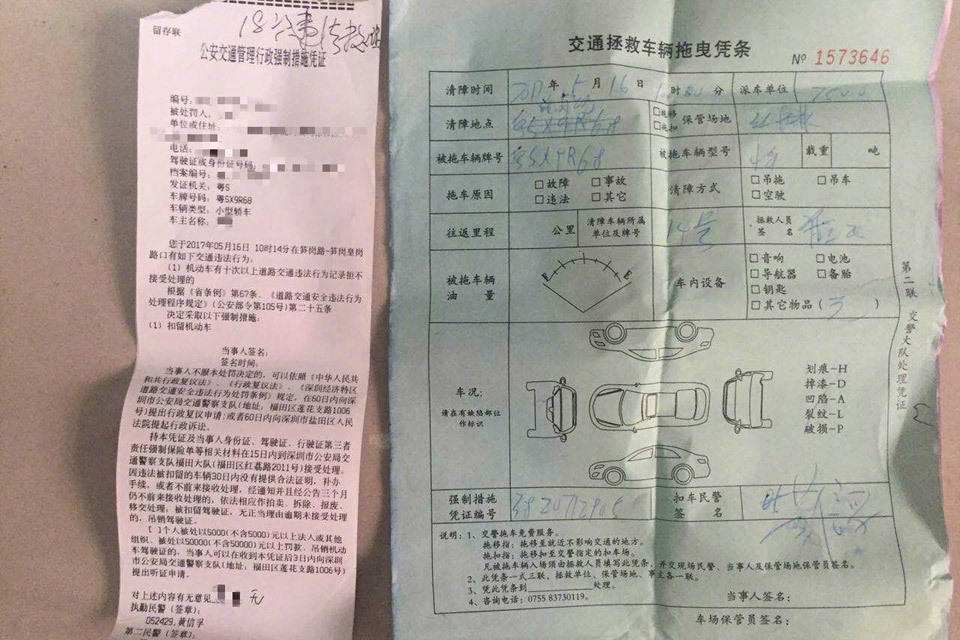 留存联
公安交通管理行政强制措施凭证
编号:
被处罚人:
单位或住址:
电话:
驾驶证或身份证号码:
档案编号:
发证机关: 粤S
车牌号码: 粤SX9R68
车辆类型: 小型轿车
车主名称:
您于2017年05月16日 10时14分在笋岗路-笋岗皇岗
路口有如下交通违法行为:
(1) 机动车有十次以上道路交通违法行为记录拒不
接受处理的
根据《省条例》第67条、《道路交通安全违法行为
处理程序规定》(公安部令第105号)第二十五条
决定采取以下强制措施:
(1) 扣留机动车
当事人签名:
签名时间:
当事人不服本处罚决定的,可以依照《中华人民共
和国行政复议法》、《行政复议法》、《深圳经济特区
道路交通安全违法行为处罚条例》规定,在60日内向深
圳市公安局交通警察支队(地址:福田区莲花支路1006
号)提出行政复议申请;或者60日内向深圳市盐田区人民
法院提起行政诉讼。
持本凭证及当事人身份证、驾驶证、行驶证第三者
责任强制保险单等相关材料在15日内到深圳市公安局交
通警察支队福田大队(福田区红荔路2011号)接受处理。
因违法被扣留的车辆30日内没有提供合法证明,补办
手续,或者不前来接收处理,经通知并且经公告三个月
仍不前来接收处理的,依法相应作拍卖、拆除、报废、
移交处理,被扣留驾驶证,无正当理由逾期未接受处理
的,吊销驾驶证。
[ ]个人被处以5000(不含5000)元以上法人或其他
组织、被处以50000(不含50000)元以上罚款、吊销机动
车驾驶证的,当事人可以在收到本凭证后3日内向深圳
市公安局交通警察支队(地址:福田区莲花支路1006号)
提出听证申请。
对上述内容有无意见 无
执勤民警(签章):
052429,黄信孚
第二民警(签章):
交通拯救车辆拖曳凭条
№ 1573646
清障时间 2017年5月16日 时 分 派车单位
清障地点 粤SX9R68 □拖移 □拖扣 保管场地
被拖车辆牌号 粤SX9R68 被拖车辆型号 载重 吨
拖车原因 □故障 □事故 □违法 □其它 清障方式 □吊拖 □吊车 □空驶
往返里程 公里 清障车辆所属单位及牌号 14号 拯救人员签名
被拖车辆油量 E F 车内设备 □音响 □电池 □导航器 □备胎 □钥匙 □其它物品( )
车况:
请在有缺陷部位作标识
划痕-H
掉漆-D
凹陷-A
裂纹-L
破损-P
强制措施凭证编号 扣车民警签名
说明:1、交警拖车免费服务。
拖移指:拖移至就近不影响交通的地方。
拖扣指:拖移扣至交警指定的扣车场。
凡被拖车辆入场须由拯救人员填写此凭条,并交现场民警、当事人及保管场地保管员签名。
2、此凭条一式三联,拯救单位、保管场地、事主各一联。
3、凭此凭条到 处理。
4、咨询电话:0755 83730119。
当事人签名:
车场保管员签名:
第二联 交警大队处理凭证